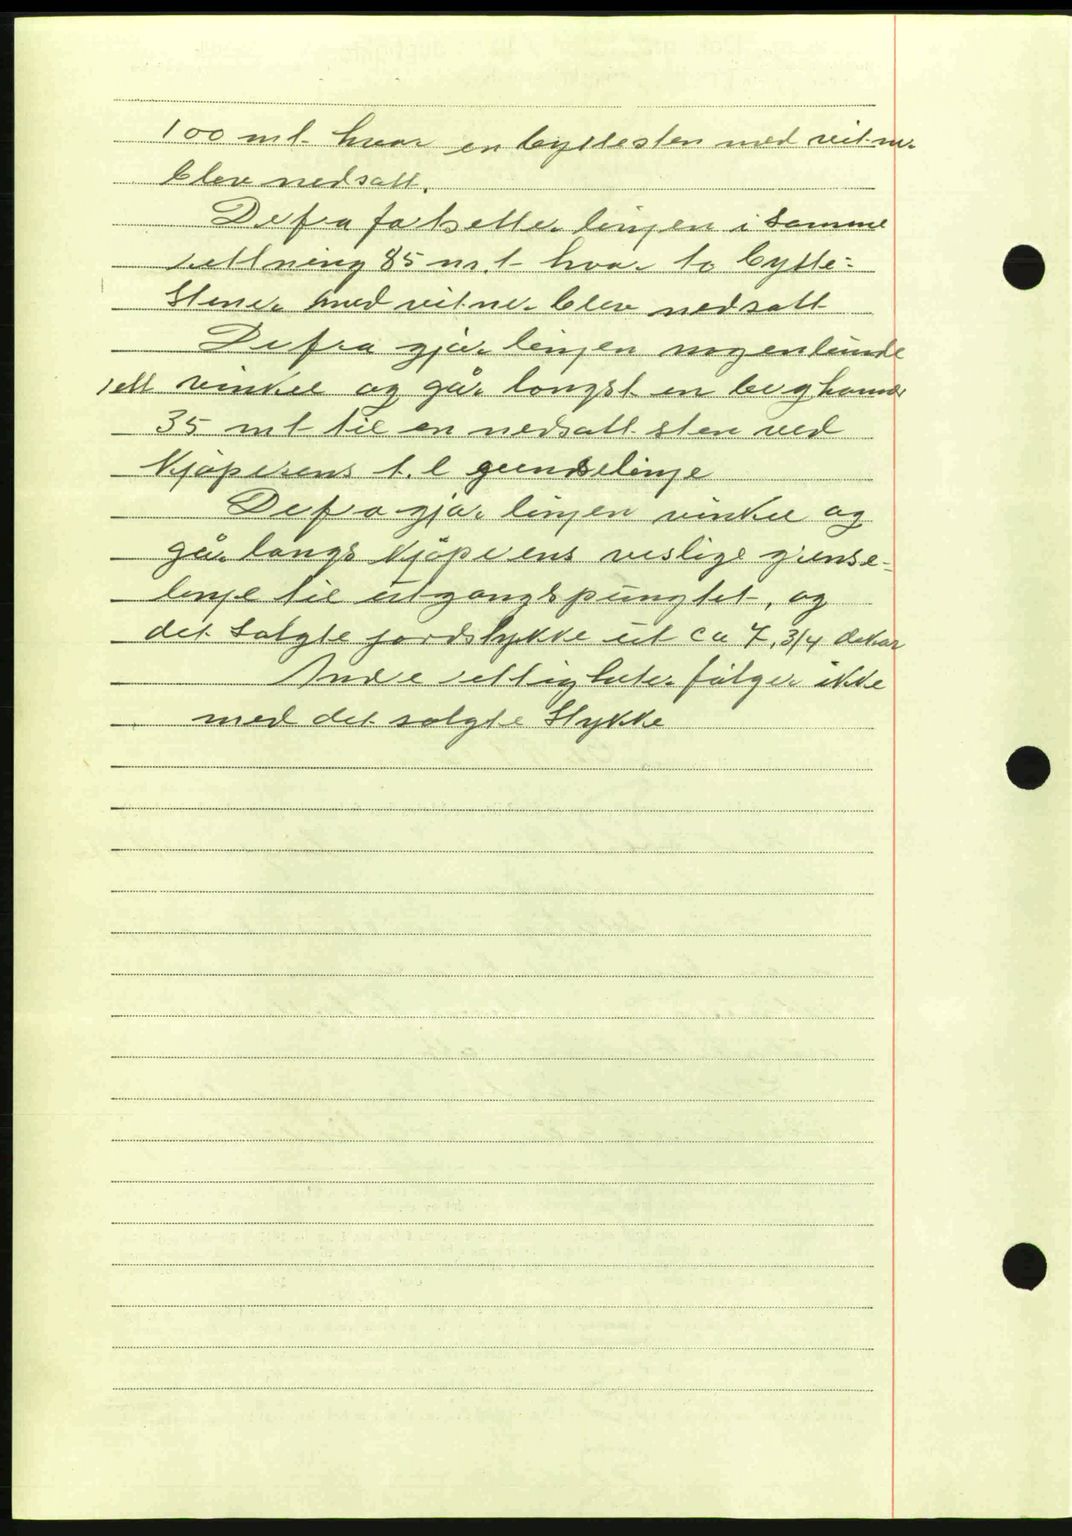 100 mt. hvor en byttesten med vitner
blev nedsatt.
Derfra fortsetter linjen i samme
rettning 85 m.t hvor to bytte-
stener med vitner blev nedsatt
Derfra gjør linjen nogenlunde
rett vinkel og går langst en berghamer
35 mt til en nedsatt sten ved
Kjøperens t.l grenselinje
Derfra gjør linjen vinkel og
går langs kjøperens veslige grense-
linje til utgangspungtet, og
det solgte jordstykke ut ca 7, 3/4 dekar
Andre rettigheter følger ikke
med det solgte stykke